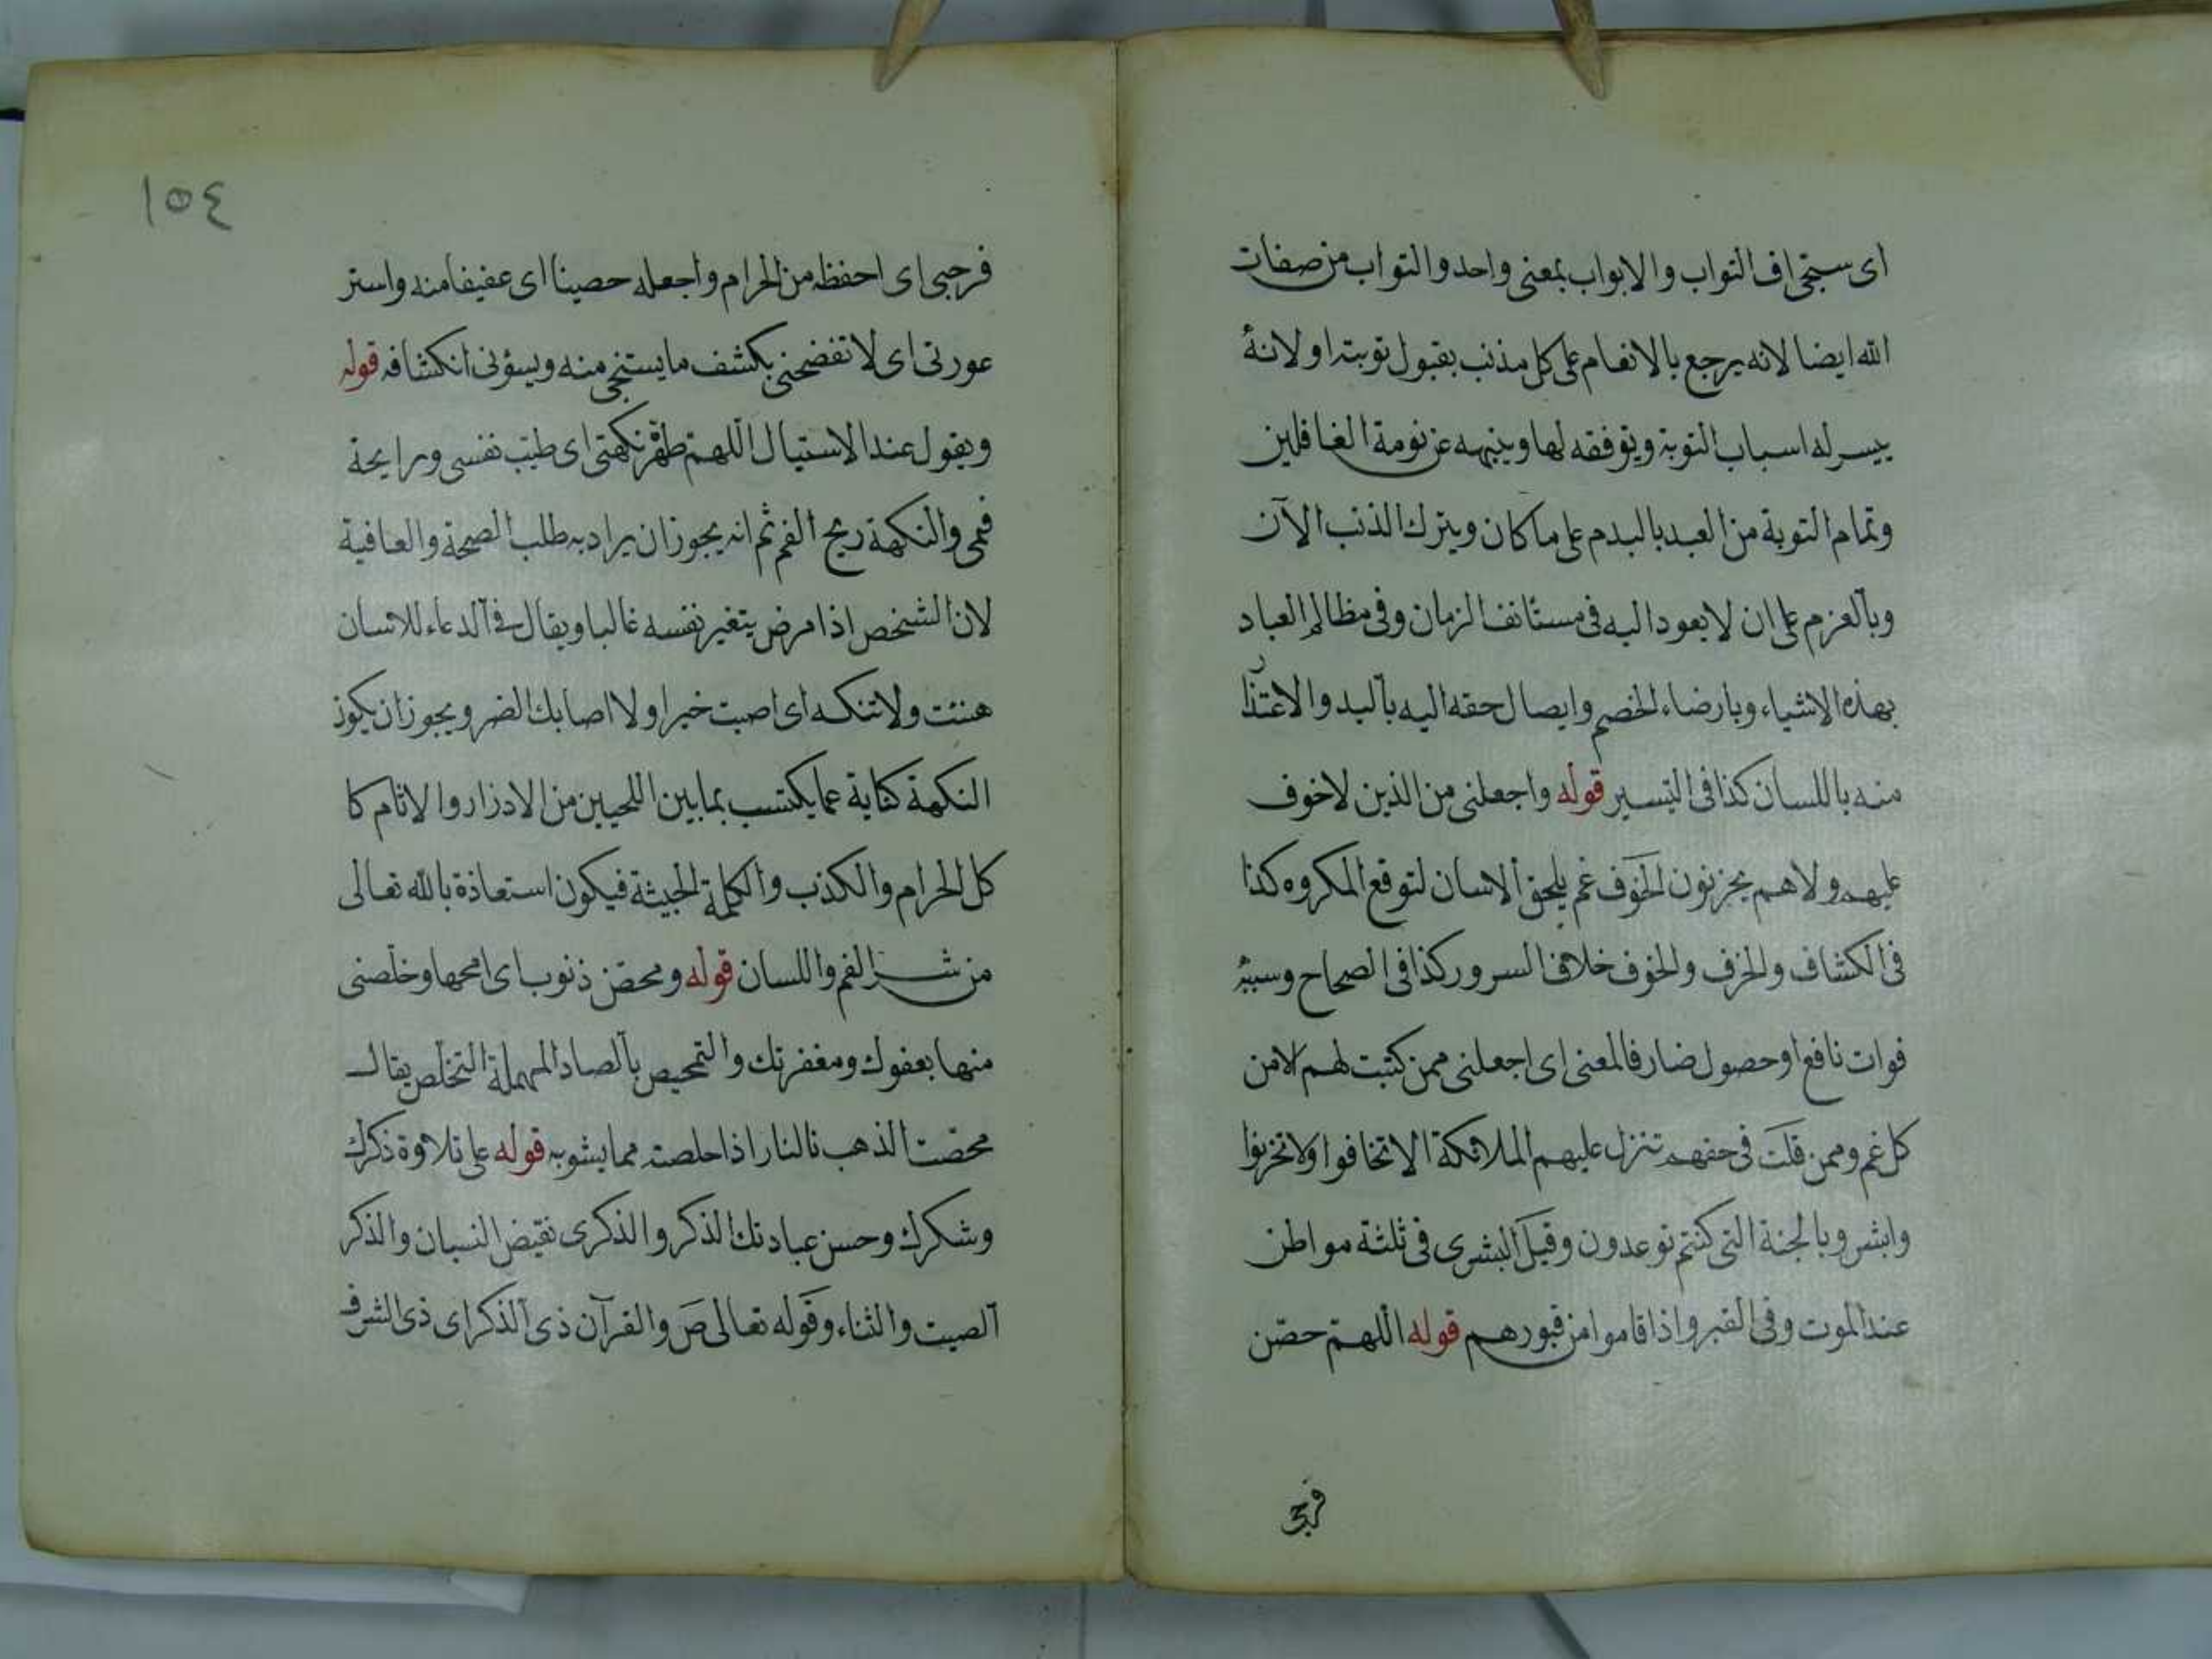 اى سبتجى اف التواب والابواب بمعنى واحد والتواب من صفات
الله ايضا لانه يرجع بالانعام على كل مذنب بقبول توبته اولانه
ييسر له اسباب التوبة ويوفقه لها وينبهه عن نومة الغافلين
وتمام التوبة من العبد بالبدم على ما كان ويترك الذنب الآن
وبالعزم على ان لايعود اليه فى مستانف الزمان وفى مظالم العباد
بهذه الاشياء وبارضاء الخصم وايصال حقه اليه باليد والاعتذار
منه باللسان كذا فى التيسير قوله واجعلنى من الذين لاخوف
عليهم ولاهم يحزنون الخوف غم يلحق الانسان لتوقع المكروه كذا
فى الكشاف والحزف والخوف خلاف السرور كذا فى الصحاح وسببه
فوات نافع او حصول ضار فالمعنى اى اجعلنى ممن كتبت لهم الامن
كل غم وممن قلت فى حقهم تتنزل عليهم الملائكة الاتخافوا ولاتحزنوا
وابشروبالجنة التى كنتم توعدون وقيل البشرى فى ثلثة مواطن
عند الموت وفى القبر واذا قاموا من قبورهم قوله اللهم حصن
فرجى
١٥٤
فرجى اى احفظه من الحرام واجعله حصينا اى عفيفا منه واستر
عورتى اى لاتفضحنى بكشف ما يستنجى منه ويسؤنى انكشافه قوله
ويقول عند الاستيال اللهم طهر نكهتى اى طيب نفسى ورايحة
فمى والنكهة ريح الفم ثم انه يجوز ان يراد به طلب الصحة والعافية
لان الشخص اذا مرض يتغير نفسه غالبا ويقال فى الدعاء للانسان
هنئت ولاتنكه اى اصبت خيرا ولا اصابك الضر ويجوز ان يكون
النكهة كناية عما يكتسب بما بين اللحيين من الادزار والاثام كا
كل الحرام والكذب والكلمة الخبيثة فيكون استعاذة بالله تعالى
من شر الفم واللسان قوله ومحص ذنوب اى امحها وخلصنى
منها بعفوك ومغفرتك والتمحيص بالصاد المهملة التخلص يقال
محصت الذهب نالنار اذا خلصته مما يشوبه قوله على تلاوة ذكرك
وشكرك وحسن عبادتك الذكر والذكرى نقيض النسيان والذكر
الصيت والثناء وقوله تعالى ص والقرآن ذى الذكر اى ذى الشرف